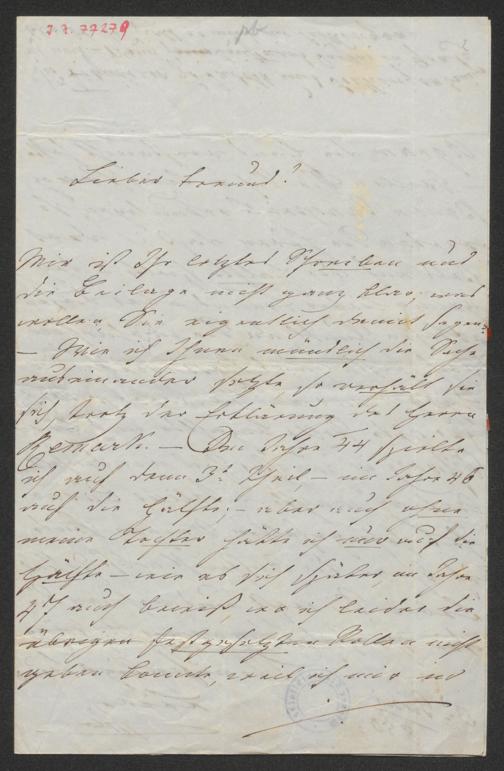 J. J. 77279
Lieber Freund!
Mir ist Ihr letztes Schreiben und
die Beilage nicht ganz klar, was
wollen Sie eigentlich damit sagen?
– Wie ich Ihnen mündlich die Sache
auseinander setzte, so verhält sie
sich, trotz der Erklärung des Herrn
– Im Jahre 44 spielte
ich auf dem 3t Theil – im Jahre 46
auf die Hälfte; – aber auch ohne
meine Tochter hätte ich nur auf die
Hälfte – wie es sich später, im Jahre
47 auch bewieß, wo ich leider die
übrigen festgesetzten Rollen nicht
geben konnte, weil ich mir